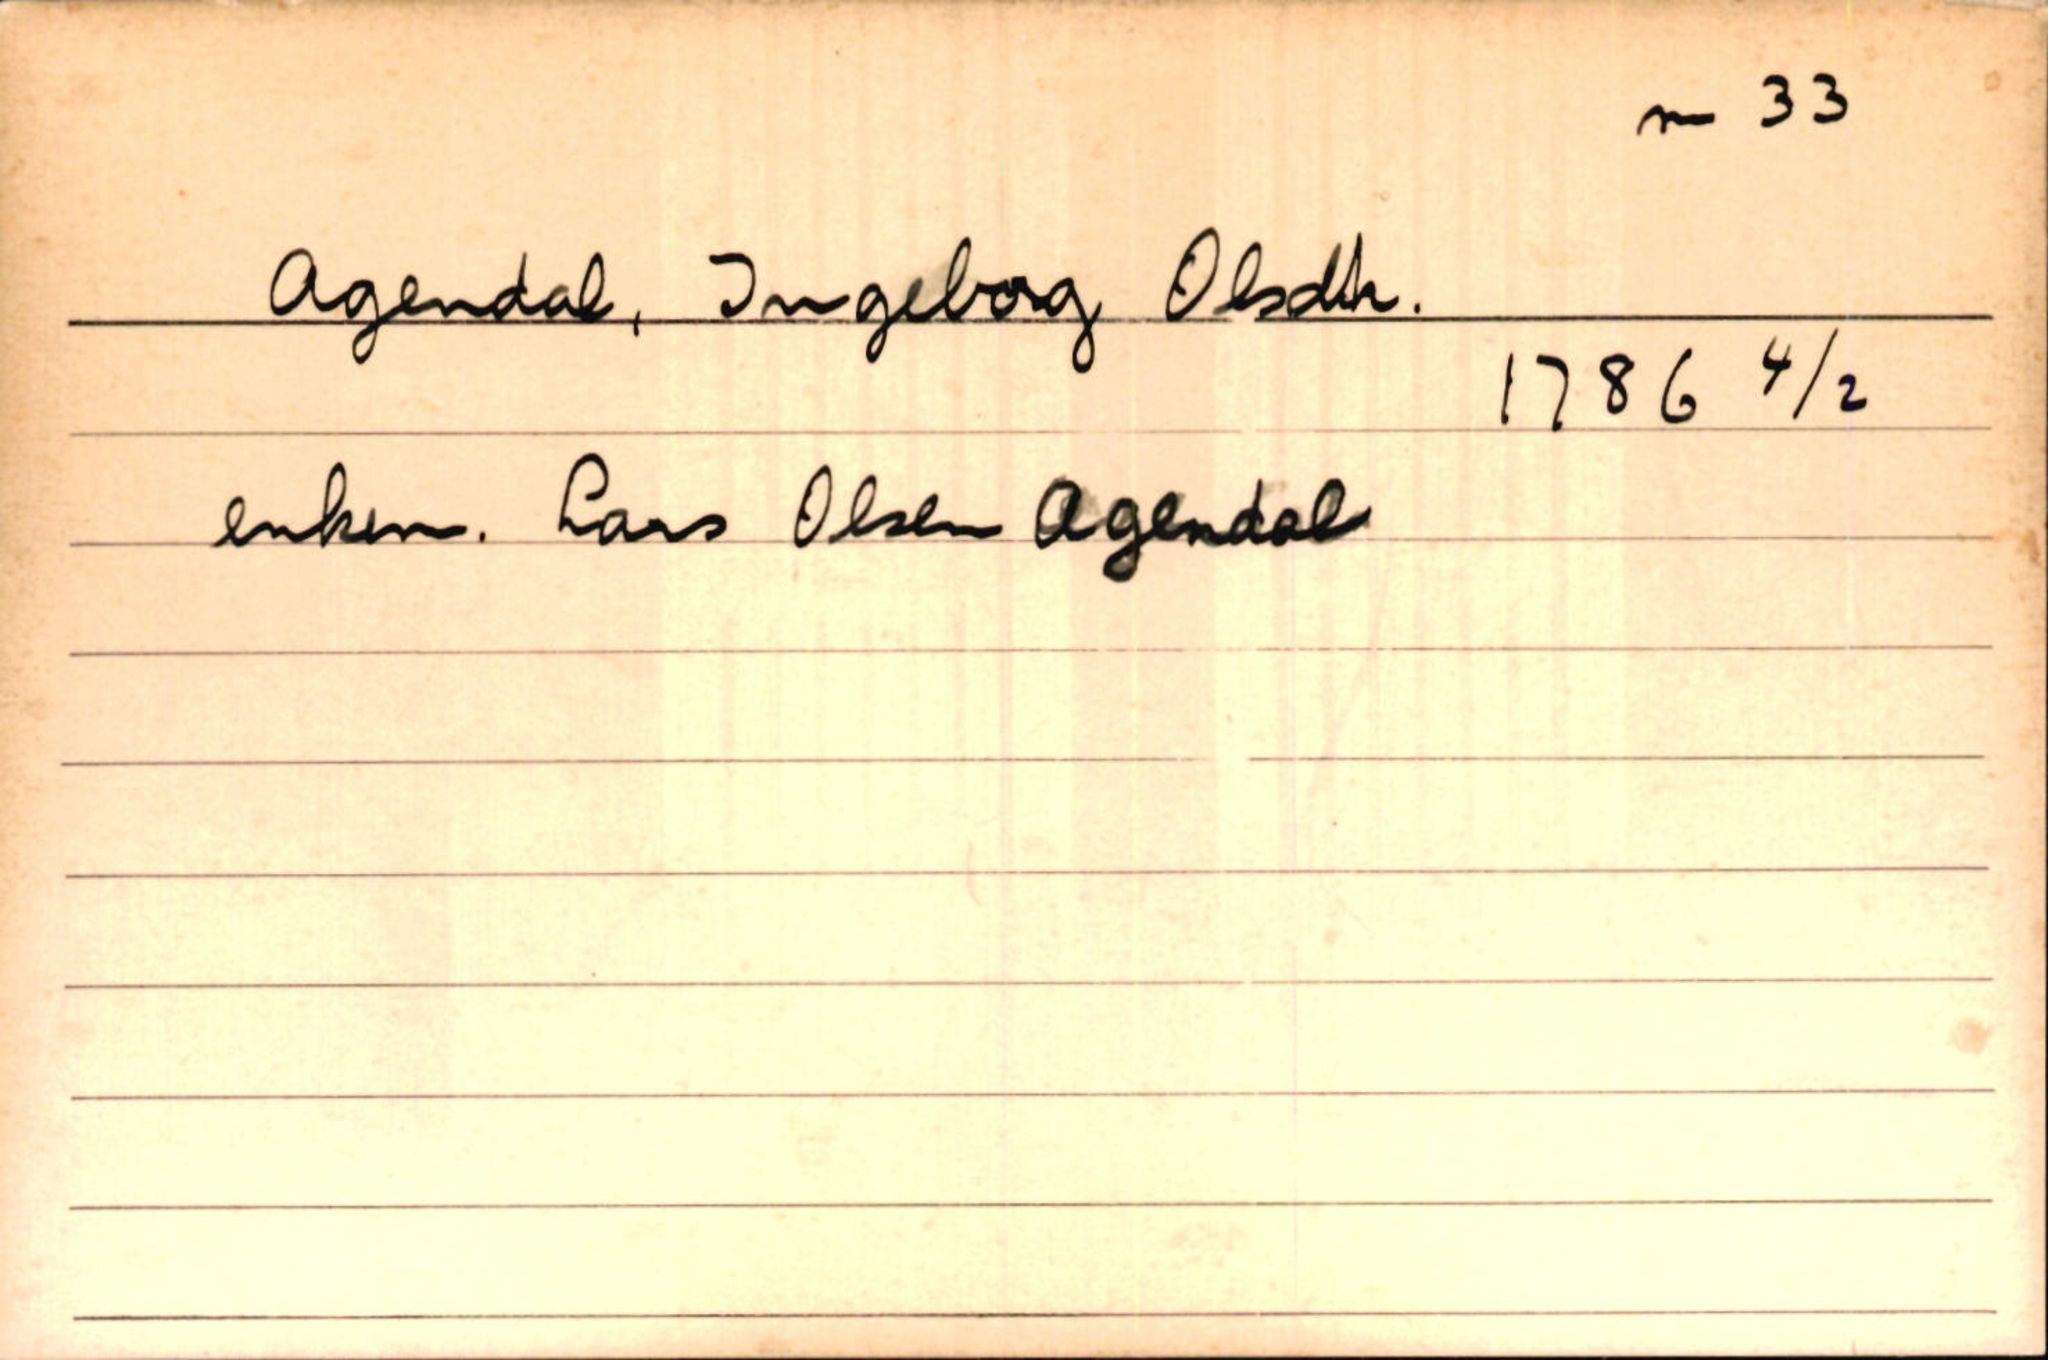 m 33
Agendal, Ingeborg Olsdtr.
1786 4/2
enkem. Lars Olsen Agendal